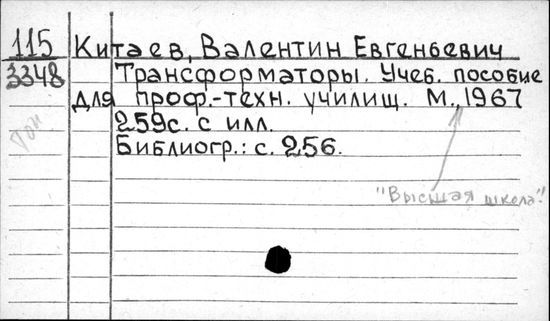 115 Китаев, Валентин Евгеньевич
3348 Трансформаторы. Учеб. пособие
для проф.-техн. училищ. М., 1967
259с. с илл.
Библиогр.: с. 256.
"Высшая школа".